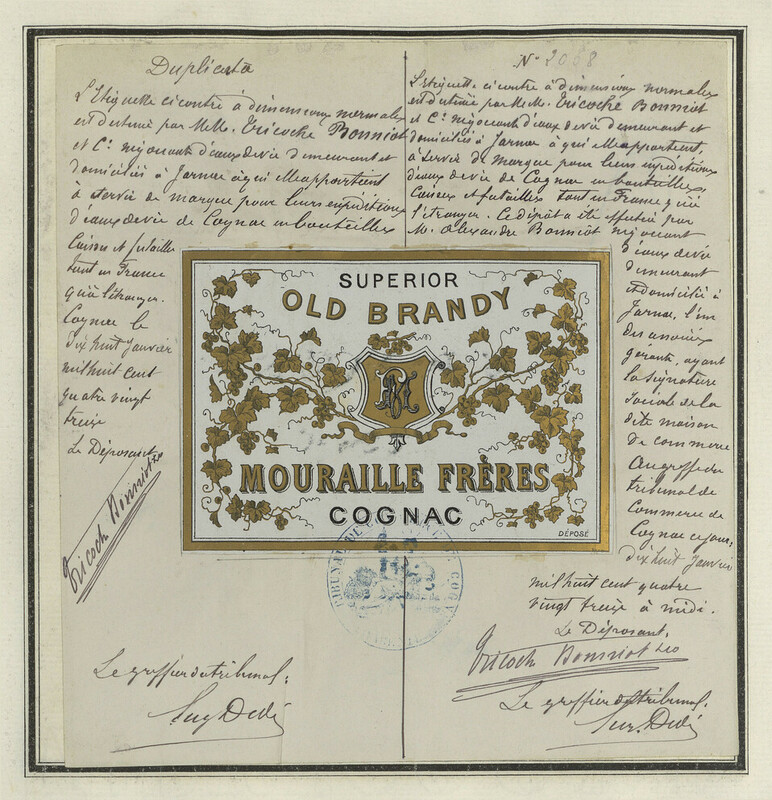 Duplicata
L'Etiquette ci contre à dimensions normales
est destinée par M.M. Tricoche Bonniot
et Cie négociant d'eaux de vie demeurant et
domiciliés à Jarnac à qui elle appartient
à servir de marque pour leurs expéditions
d'eaux de vie de Cognac en bouteilles
Caisses et futailles
tant en France
qu'à l'étranger.
Cognac le
dix huit Janvier
mil huit cent
quatre vingt
treize
Le Déposant
Tricoch Bonniot & Co
Le greffier du tribunal:
No 2058
L'etiquette ci contre à dimensions normales
est destinée par M.M. Tricoche Bonniot
et Cie négociant d'eaux de vie demeurant et
domiciliés à Jarnac à qui elle appartient
à servir de marque pour leurs expéditions
d'eaux de vie de Cognac en bouteilles
Caisses et futailles tant en France qu'à
l'étranger. Ce dépôt a été effectué par
M. Alexandre Bonniot négociant
d'eaux de vie
demeurant
et domicilié à
Jarnac, l'un
des associés
gerants, ayant
la signature
sociale de la
dite maison
de commerce
Au greffe du
tribunal de
Commerce de
Cognac ce jour:
dix huit Janvier
mil huit cent quatre
vingt treize à midi.
Le Déposant,
Tricoch Bonniot & Co
Le greffier du tribunal.
SUPERIOR
OLD BRANDY
MOURAILLE FRÈRES
COGNAC
DÉPOSÉ